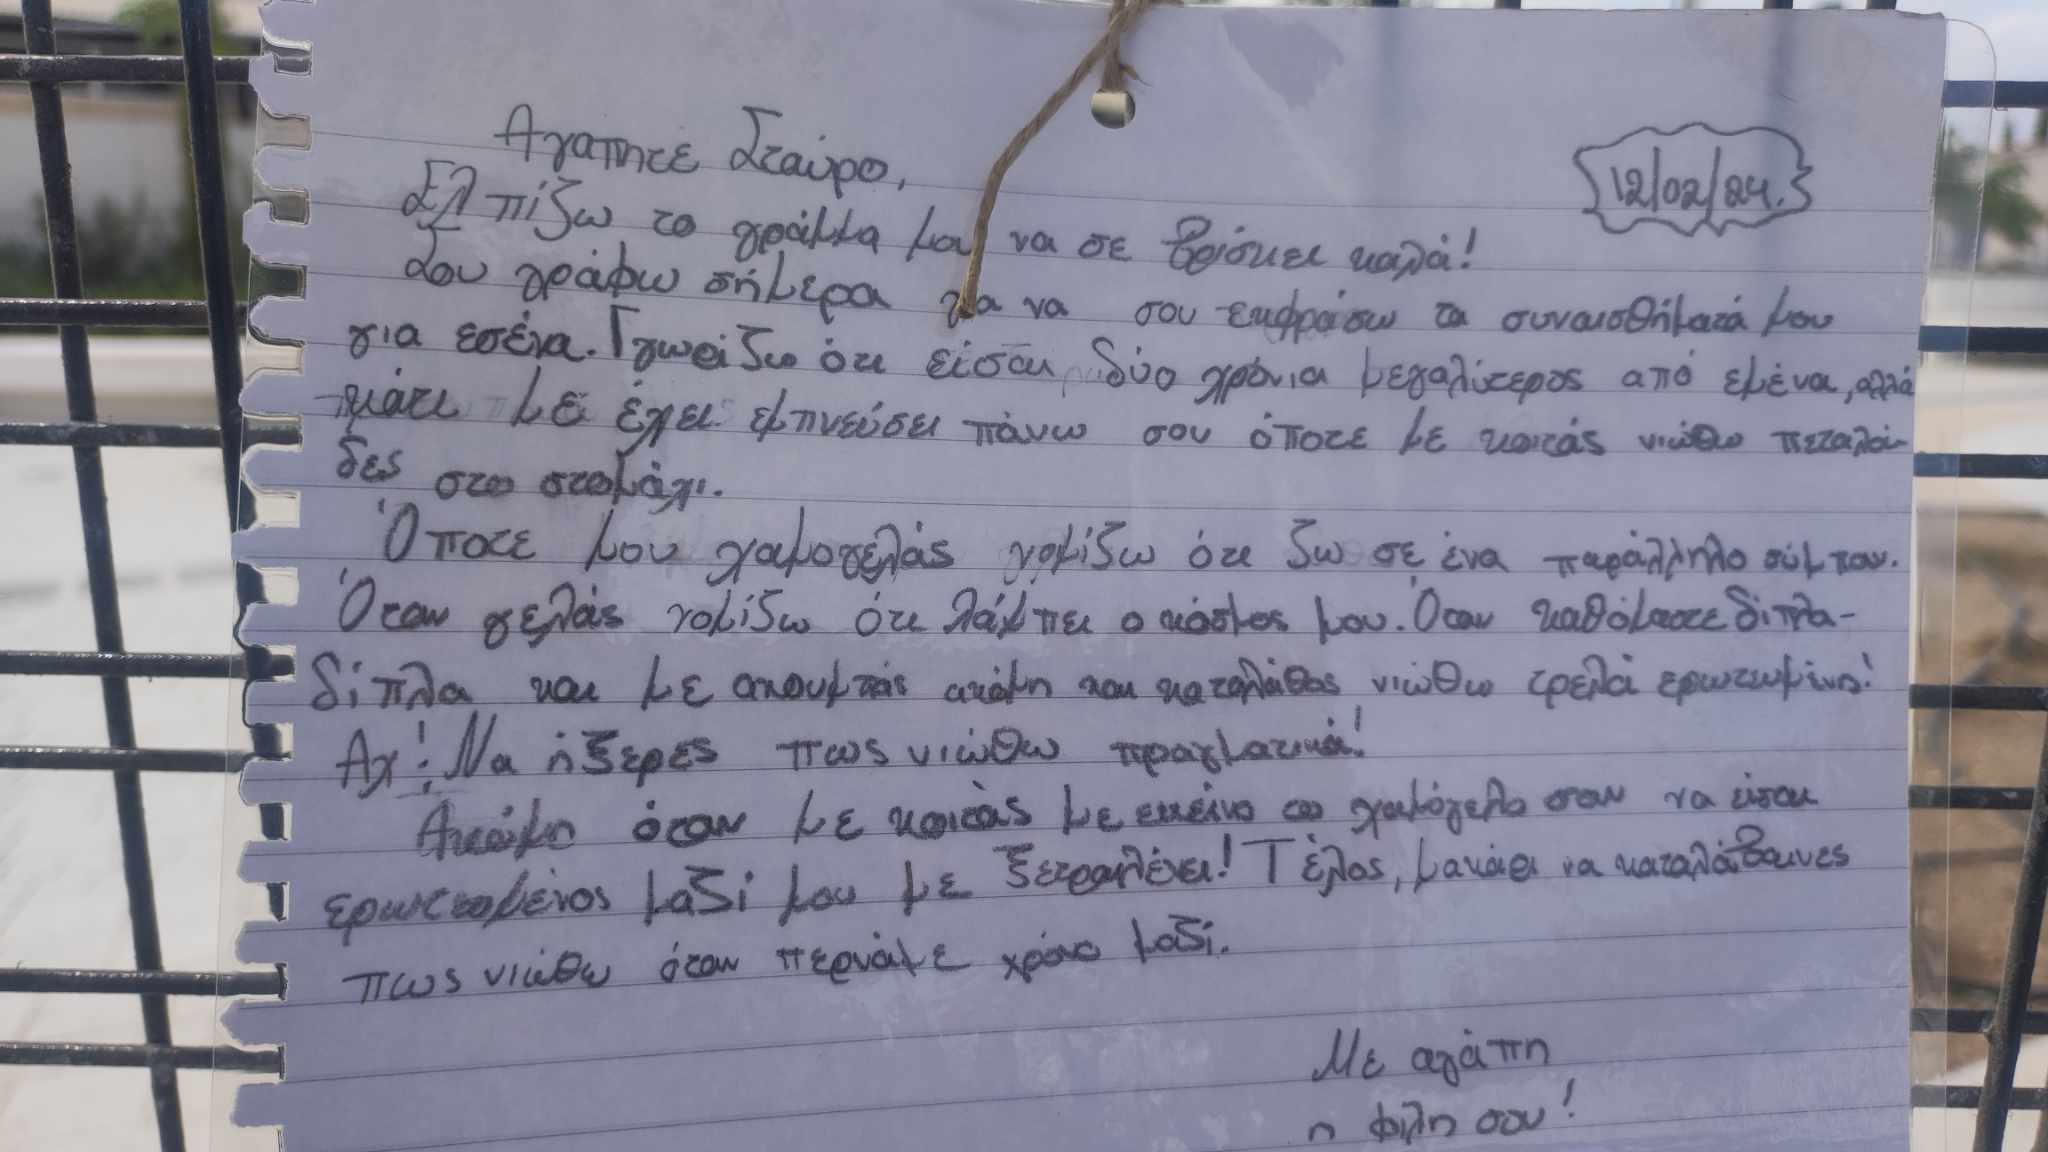 12/02/24.
Αγαπητέ Σταύρο,
Ελπίζω το γράμμα μου να σε βρίσκει καλά!
Σου γράφω σήμερα για να σου εκφράσω τα συναισθήματά μου
για εσένα. Γνωρίζω ότι είσαι δύο χρόνια μεγαλύτερος από εμένα, αλλά
κάτι με έχει εμπνεύσει πάνω σου όποτε με κοιτάς νιώθω πεταλού-
δες στο στομάχι.
Όποτε μου χαμογελάς νομίζω ότι ζω σε ένα παράλληλο σύμπαν.
Όταν γελάς νομίζω ότι λάμπει ο κόσμος μου. Όταν καθόμαστε δίπλα-
δίπλα και με ακουμπάς ακόμη και καταλάθος νιώθω τρελά ερωτωμένη!
Αχ! Να ήξερες πως νιώθω πραγματικά!
Ακόμη όταν με κοιτάς με εκείνο το χαμόγελο σαν να είσαι
ερωτεομένος μαζί μου με ξετρελένει! Τέλος, μακάρι να καταλάβαινες
πως νιώθω όταν περνάμε χρόνο μαζί.
Με αγάπη
η φίλη σου!